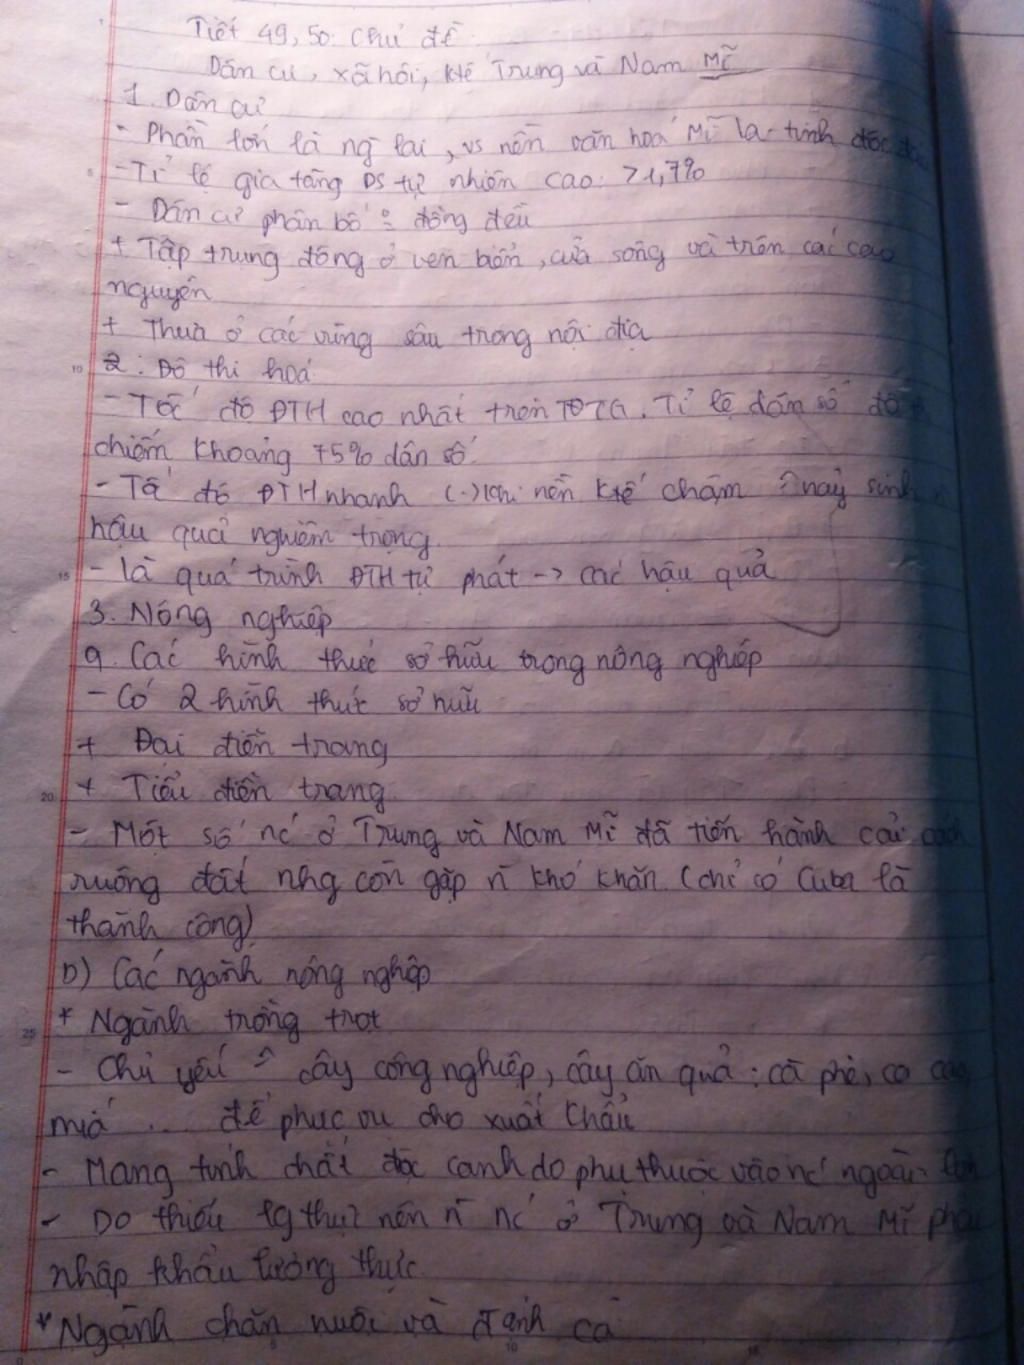 Tiết 49, 50: Chủ đề
Dân cư, xã hội, ktế Trung và Nam Mĩ
1. Dân cư
- Phần lớn là ng lai, vs nền văn hoá Mĩ la-tinh độc
- Tỉ lệ gia tăng DS tự nhiên cao: >1,7%
- Dân cư phân bố đồng đều
+ Tập trung đông ở ven biển, cửa sông và trên các cao
nguyên
+ Thưa ở các vùng sâu trong nội địa
2. Đô thị hoá
- Tốc độ ĐTH cao nhất trên TG. Tỉ lệ dân số đô
chiếm khoảng 75% dân số
- Tố độ ĐTH nhanh (.) khi nền ktế chậm nảy sinh
hậu quả nghiêm trọng
- là quá trình ĐTH tự phát -> các hậu quả
3. Nông nghiệp
a. Các hình thức sở hữu trong nông nghiệp
- Có 2 hình thức sở hữu
+ Đại điền trang
+ Tiểu điền trang
- Một số nc ở Trung và Nam Mĩ đã tiến hành cải cách
ruộng đất nhg còn gặp n khó khăn (chỉ có Cuba là
thành công)
b) Các ngành nông nghiệp
* Ngành trồng trọt
- Chủ yếu cây công nghiệp, cây ăn quả: cà phê, ca cao,
mía ... để phục vụ cho xuất khẩu
- Mang tính chất độc canh do phụ thuộc vào nc ngoài
- Do thiếu lg thực nên n nc ở Trung và Nam Mĩ phải
nhập khẩu lương thực
* Ngành chăn nuôi và đánh cá